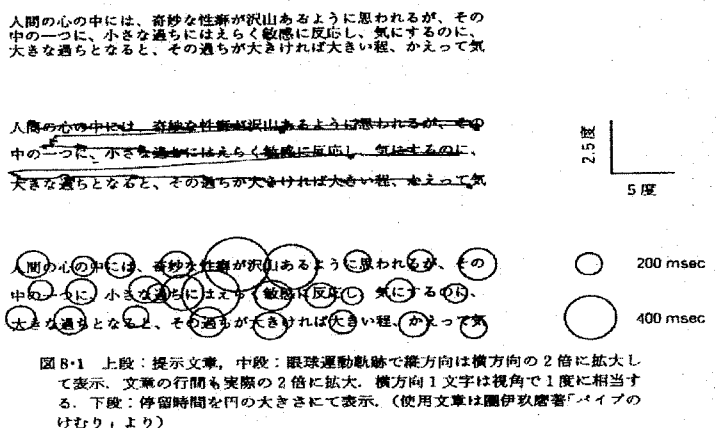 人間の心の中には、奇妙な性癖が沢山あるように思われるが、その
中の一つに、小さな過ちにはえらく敏感に反応し、気にするのに、
大きな過ちとなると、その過ちが大きければ大きい程、かえって気
人間の心の中には、奇妙な性癖が沢山あるように思われるが、その
中の一つに、小さな過ちにはえらく敏感に反応し、気にするのに、
大きな過ちとなると、その過ちが大きければ大きい程、かえって気
2.5度
5度
人間の心の中には、奇妙な性癖が沢山あるように思われるが、その
中の一つに、小さな過ちにはえらく敏感に反応し、気にするのに、
大きな過ちとなると、その過ちが大きければ大きい程、かえって気
200 msec
400 msec
図 8・1 上段：提示文章，中段：眼球運動軌跡で縦方向は横方向の 2 倍に拡大し
て表示．文章の行間も実際の 2 倍に拡大．横方向 1 文字は視角で 1 度に相当す
る．下段：停留時間を円の大きさにて表示．（使用文章は團伊玖磨著「パイプの
けむり」より）